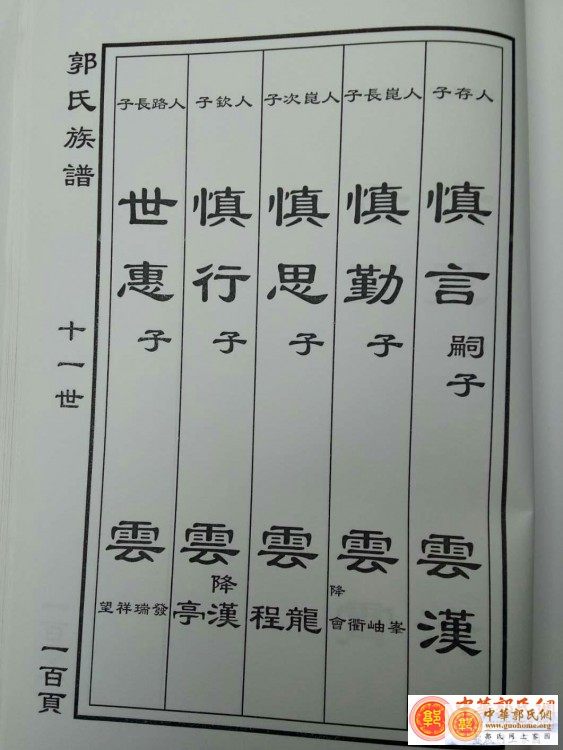 人存子
慎言
嗣子
雲漢
人崑長子
慎勤
子
雲
峯岫衢降會
人崑次子
慎思
子
雲
龍程
人欽子
慎行
子
雲
降漢亭
人路長子
世惠
子
雲
發瑞祥望
郭氏族譜
十一世
一百頁
中華郭氏網
www.guohome.com
郭氏网上家园